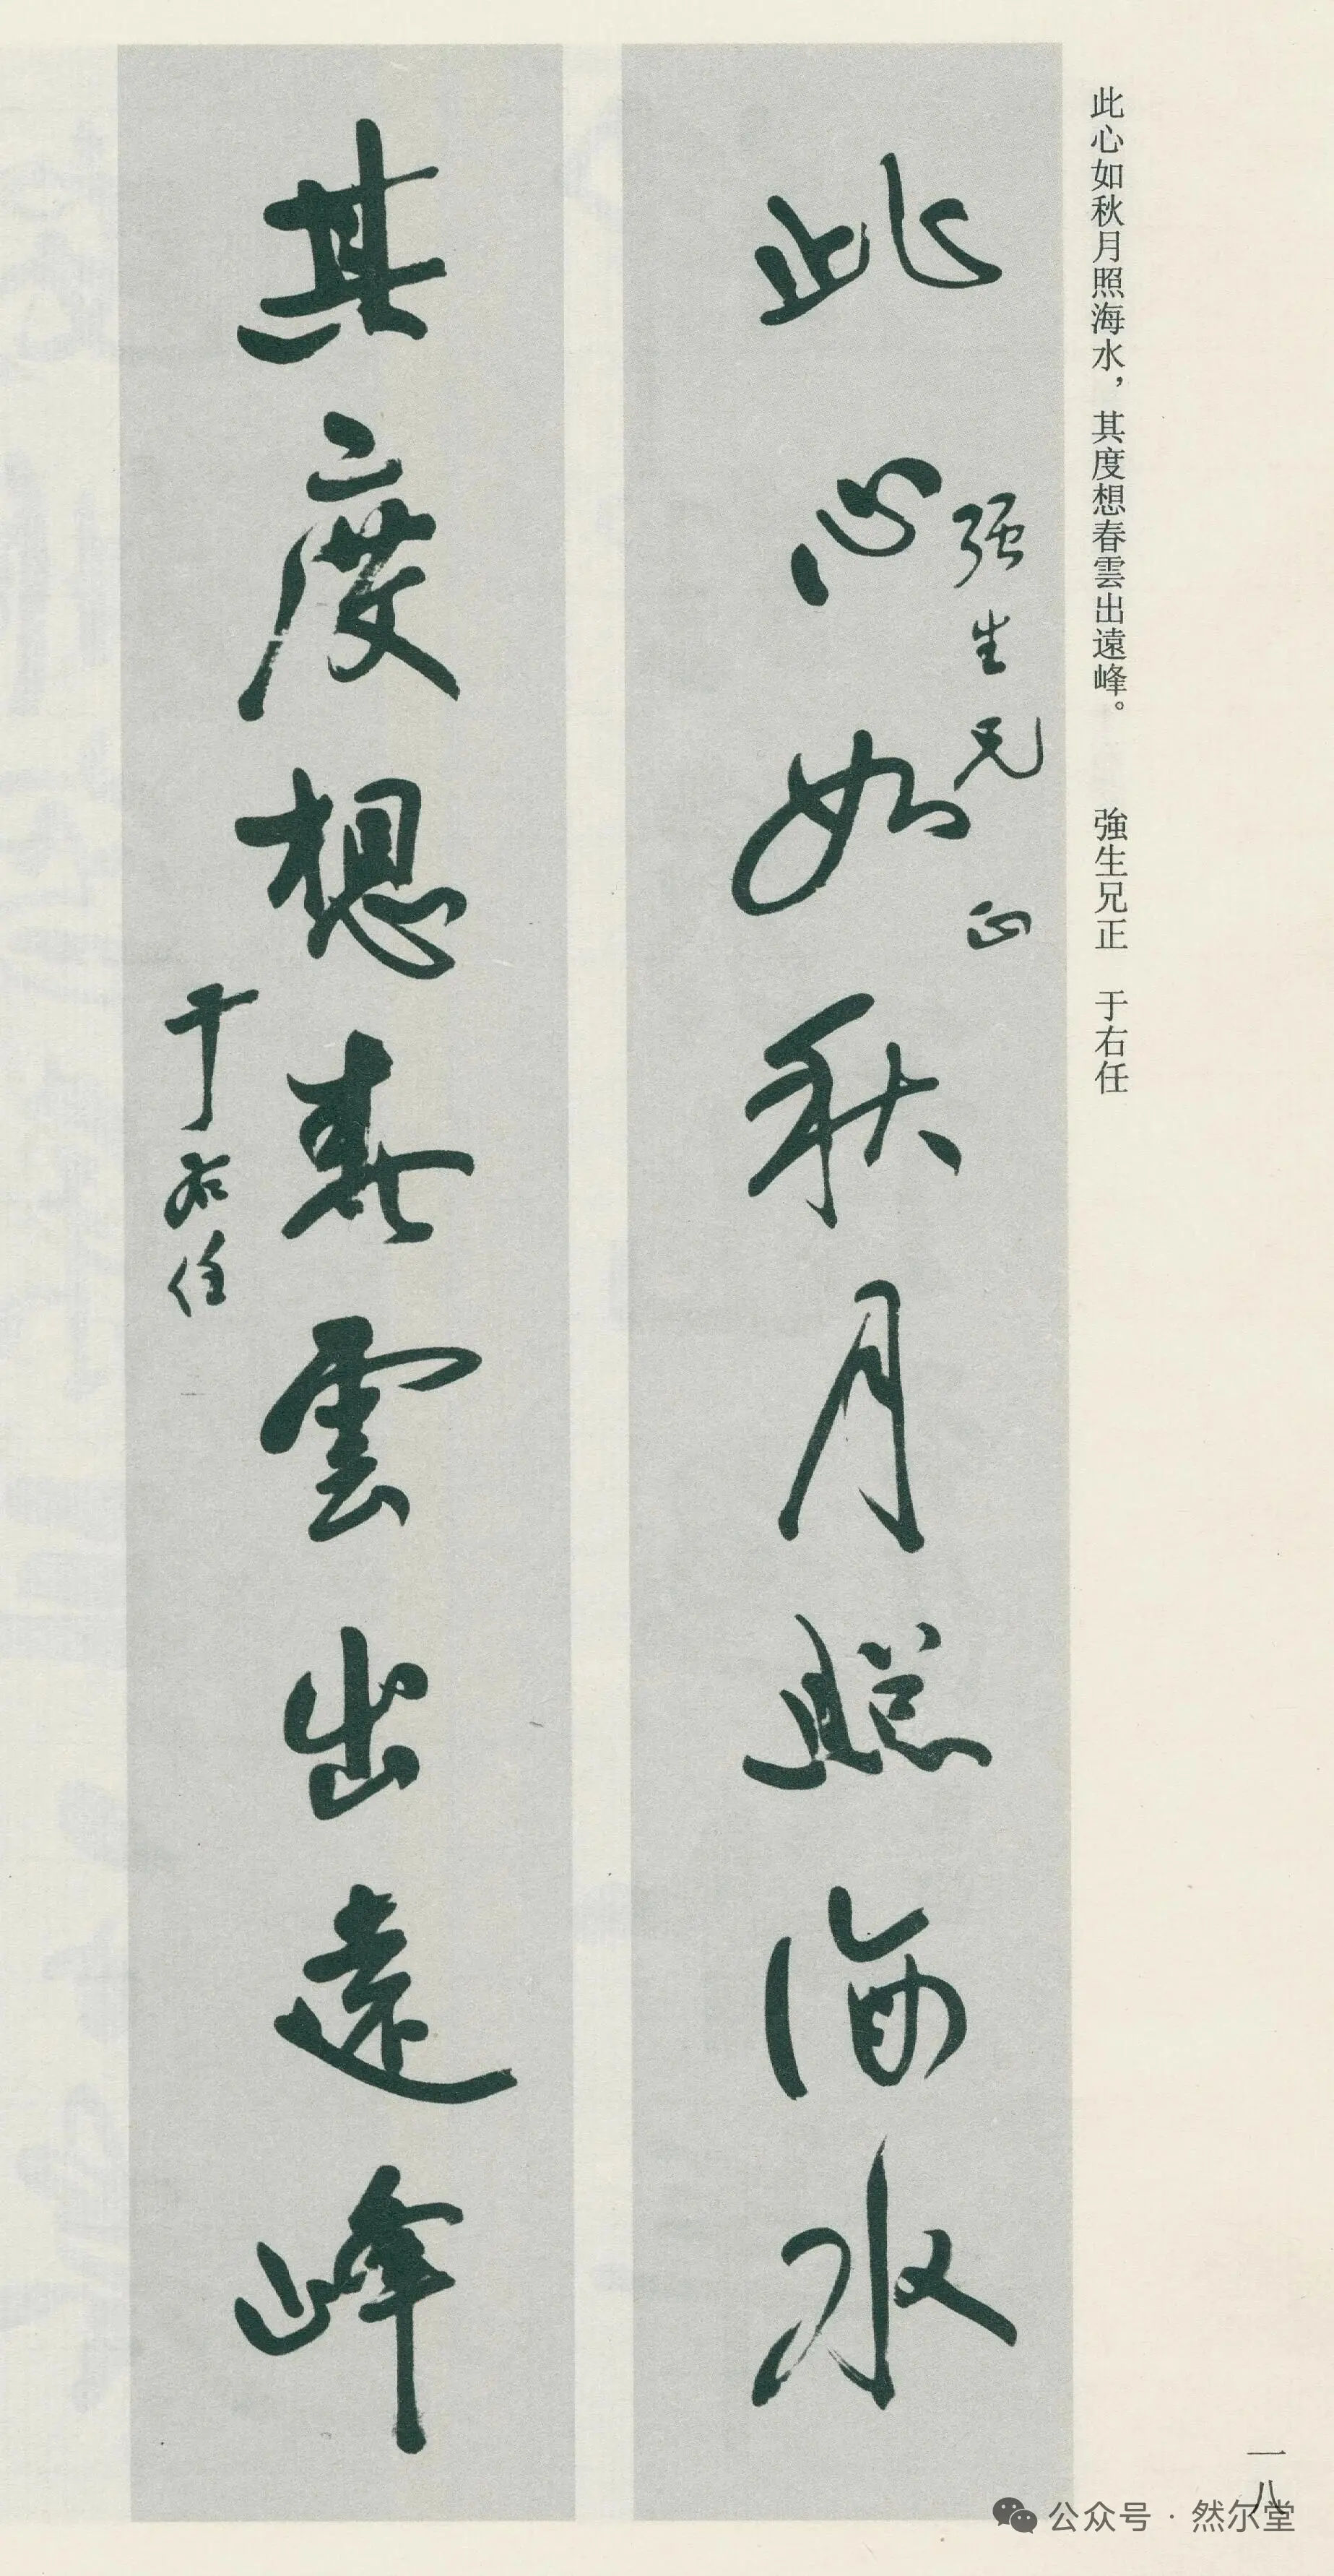 此心如秋月照海水，其度想春雲出遠峰。　強生兄正　于右任
此心如秋月照海水
强生兄正
其度想春雲出遠峰
于右任
一八
公众号·然尔堂